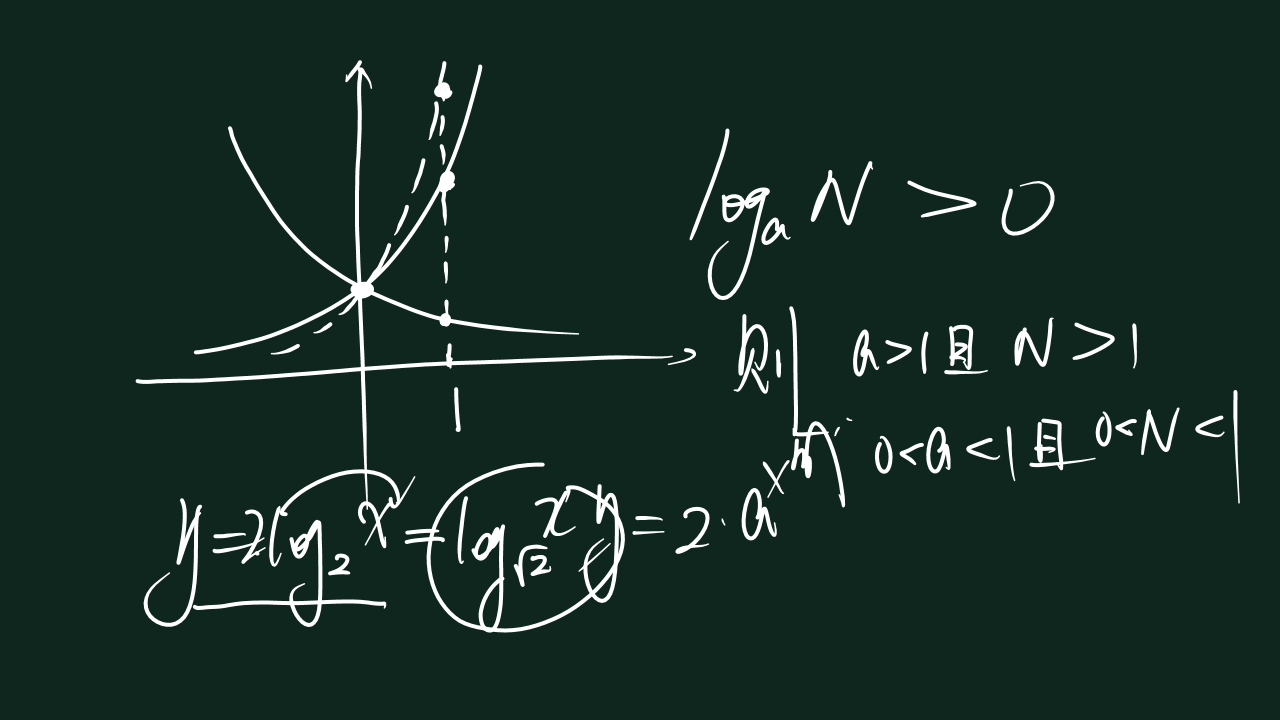 log_a N > 0
则 a>1 且 N>1
0<a<1 且 0<N<1
1
y=2log_2 x = log_√2 x y = 2·a^x